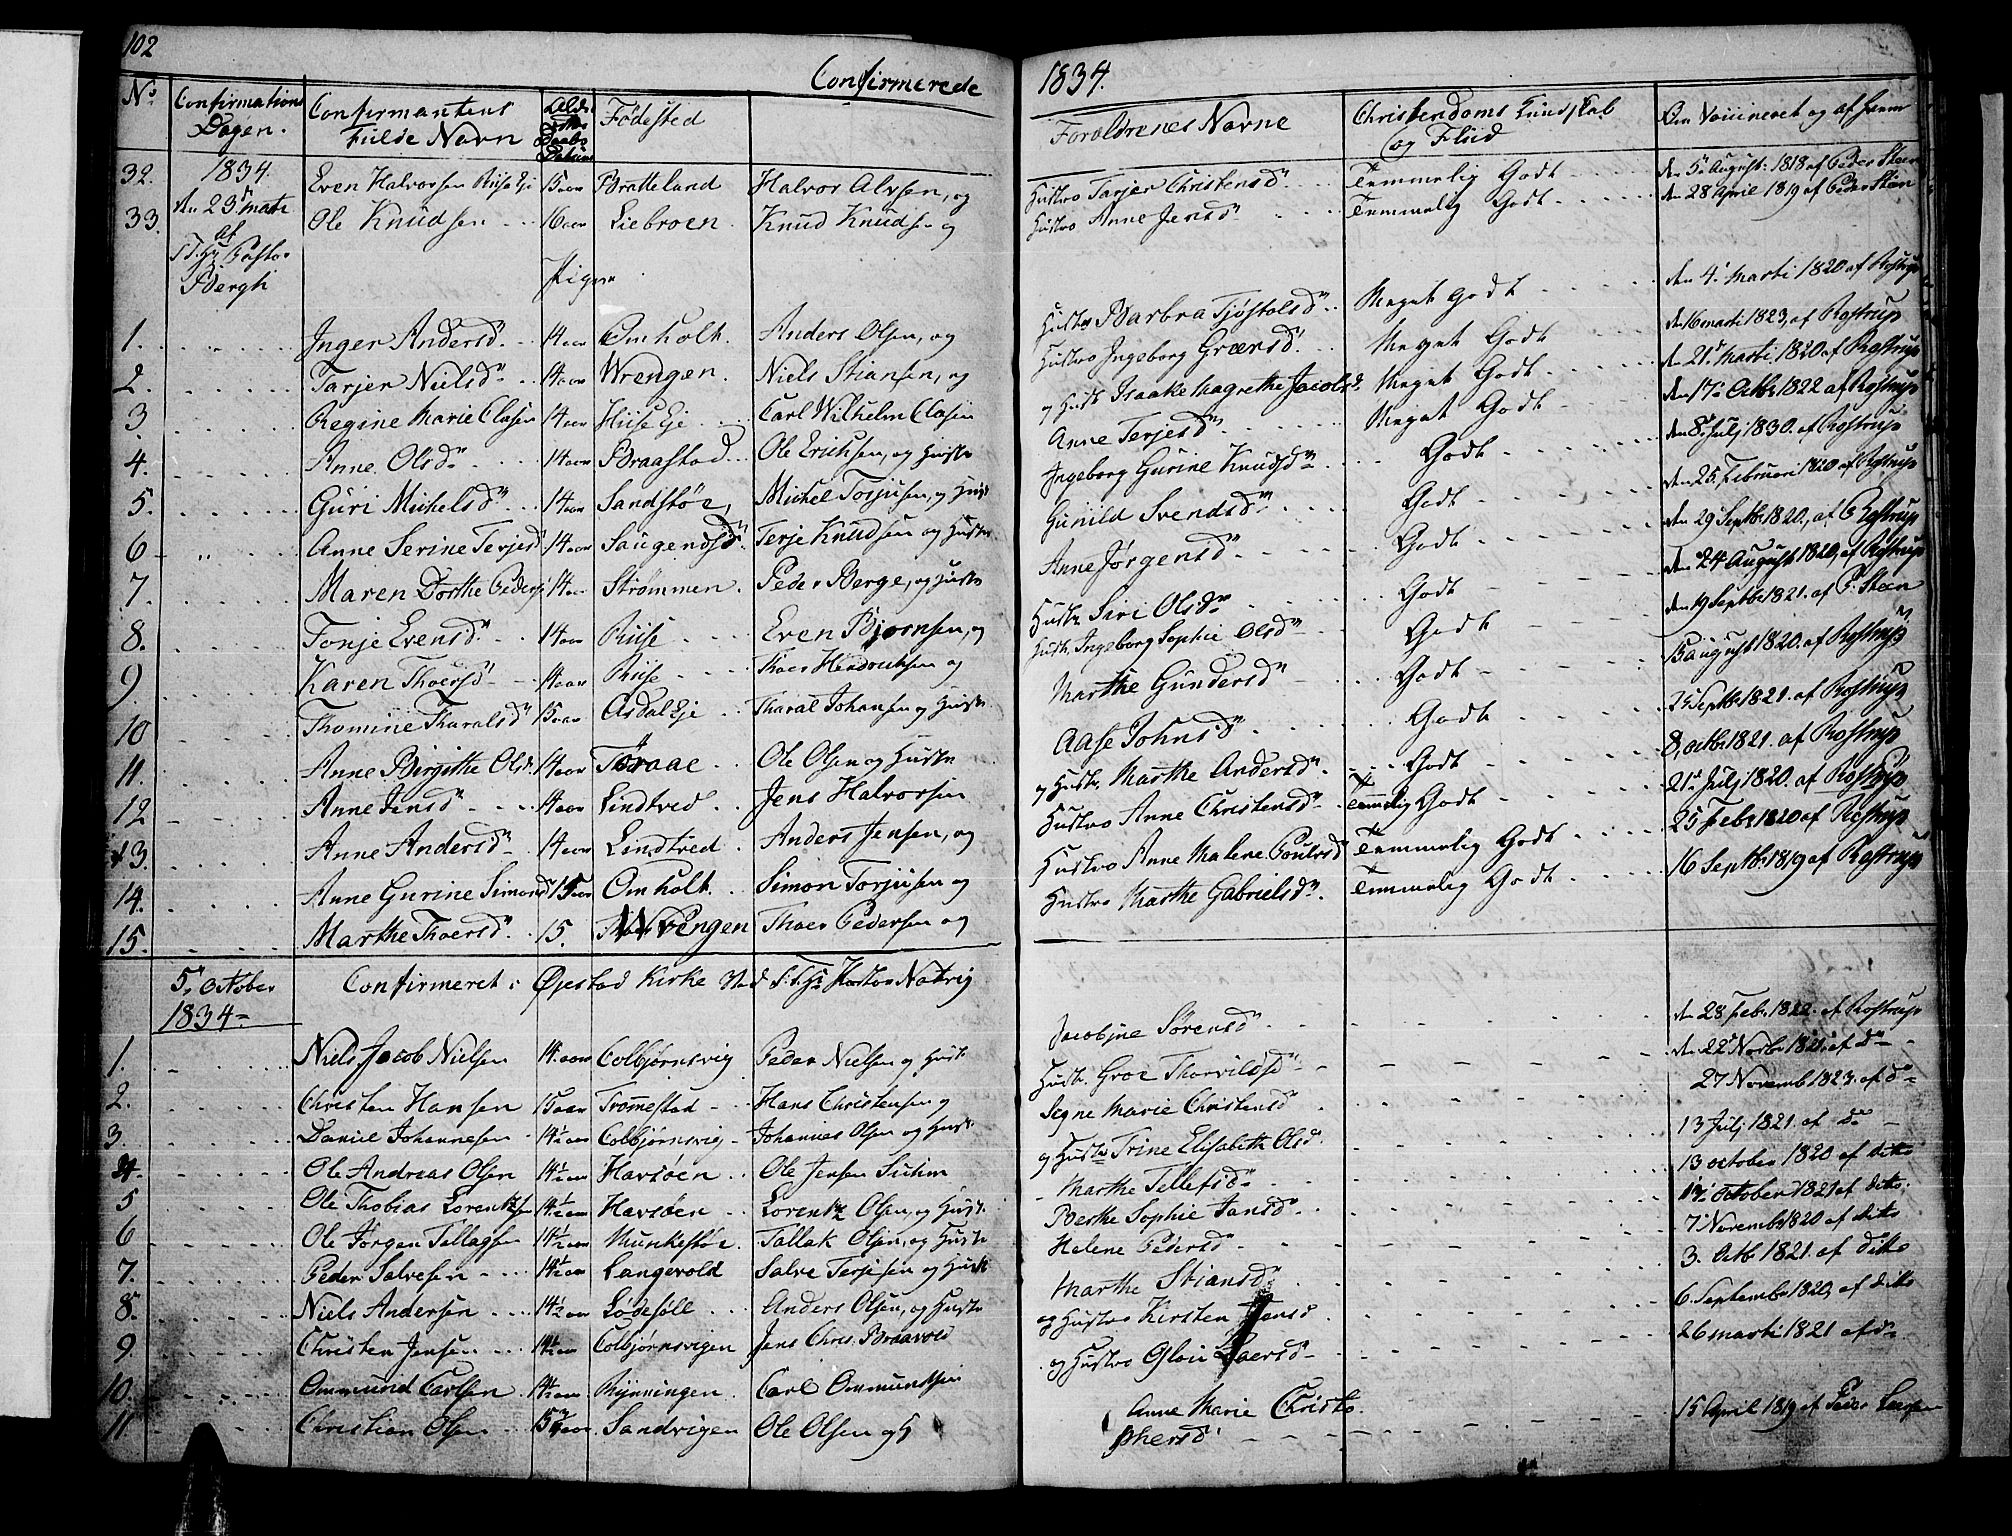 102
Confirmerede 1834.
No Confirmations Dagen. Confirmantens Fulde Navn Fødested Forældrenes Navne Christendoms Kundskab og Fliid Om Vaccineret og af hvem
32. 1834 Even Halvorsen Riise Eje 15 aar Bratteland Halvor Alvsen, og Hustro Tarjer Christensd. Temmelig Godt den 5 August 1818 af Peder Steen
33. den 23 marti Ole Knudsen 16 aar Liebroen Knud Knudsen og Hustro Anne Jensd. Temmelig Godt den 28 April 1819 af Peder Steen
af Pastor Bergh
Piger
1. Inger Andersd. 14 aar Omholt. Anders Olsen, og Hustro Barbra Tjøstolsd. Meget Godt den 4. marti 1820 af Rostrup
2. Tarjer Nielsd. 14 aar Wrengen. Niels Stiansen, og Hustro Ingeborg Grænsd. Meget Godt den 16 marti 1823, af Rostrup
3 Regine Marie Clasen 14 aar Hiise Eje Carl Wilhelm Clasen og Hustr. Isaake Magrethe Jacobsd. Meget Godt den 21 Marti 1820 af Rostrup
4. Anne Olsd. 14 aar Braastad Ole Erichsen, og Hustro Anne Terjesd. Meget Godt den 17 Octb. 1822 af Rostrup
5. Guri Michelsd. 14 aar Sandstøe, Michel Torjusen, og Hust. Ingeborg Gurine Knudsd. Godt den 8 Julj 1830. af Rostrup
6 Anne Serine Terjesd. 14 aar Terje Knudsen og Hustro Gunild Svendsd. Godt den 25. Februari 1820 af Rostrup
7. Maren Dorthe Peders 14 aar Strømmen. Peder Berge, og Hustro Anne Jørgensd. Godt den 29 Septbr 1820, af Rostrup
8. Tonje Evensd. 14 aar Riise Even Bjornsen, og Hustr. Siri Olsd. Godt den 24 August 1820, af Rostrup
9 Karen Thoersd. 14 aar Riise Thoer Hendrichsen og Hustr. Ingeborg Sophie Olsd. Godt den 19 Septbr 1821. af P. Steen
10 Thomine Tharalsd. 15 aar Asdal Eje Tharal Johansen og Hustr. Marthe Gundersd. Godt 13 august 1820. af Rostrup
11. Anne Birgitte Olsd. 14 aar Ole Olsen og Hustr. Aase Johnsd. Godt 25 Septbr 1821. af Rostrup
12 Anne Jensd. 14 aar Lindtved Jens Halvorsen og Hustr. Marthe Andersd. Godt 8. octbr 1821. af Rostrup
13. Anne Andersd. 14 aar Lindtved Anders Jensen, og Hustro Anne Christensd. Temmelig Godt 21 Julj 1820. af Rostrup
14. Anne Gurine Simonsd. 15 aar Omholt. Simon Torjusen og Hustro Anne Malene Poulsd. Temmelig Godt 25 Febr 1820 af Rostrup
15. Marthe Thoersd. 15. Wrengen Thoer Pedersen og Hustro Marthe Gabrielsd. Temmelig Godt 16 Septbr 1819 af Rostrup
5 October 1834 Confirmeret i Øjestad Kirke ved Natvig
1. Niels Jacob Nielsen 14 aar Colbjørnsvig Peder Nielsen og Hust. Jacobine Sørensd. den 28 Febr. 1822. af Rostrup
2. Christen Hansen 15 aar Tromestad Hans Christensen og Hustr. Groe Thorvildsd. den 22 Novbr 1821. af do
3. Daniel Johannesen 14½ aar Colbjørnsvig Johannes Olsen og Hust. Segne Marie Christensd. 27 Novemb 1823. af do
4 Ole Andreas Olsen 14½ aar Havsøen Ole Jensen og Hustr. Trine Elisabeth Olsd. 13 Julj 1821. af do
5 Ole Thobias Lorentzsen 14½ aar Havsøen Lorentz Olsen, og Hust. Marthe Tellefsd. 13 october 1820 af ditto
6 Ole Jørgen Tellagsen 14½ aar Munkestøe. Tallak Olsen, og Hustr. Berthe Sophie Jansd. october 1821 af ditto.
7. Peder Salvesen 14½ aar Langevold Salve Terjesen og Hust. Helene Pedersd. 7 Novembr 1820 af ditto
8. Niels Andersen 14½ aar Lødesøll Anders Olsen, og Hustr. Marthe Stiansd. 3. Octb 1821. af ditto
9. Christen Jensen 14½ aar Colbjørnsvigen Jens Chris. Braavold og Hustro Kirsten Jensd. 6. September 1820, af ditto
10. Ommund Carlsen 14½ aar Rynningen. Carl Ommundsen og Hustro 26 marti 1821 af do
11 Christian Olsen 15¾ aar. Sandvigen Ole Olsen og Anne Marie Christophersd. 15 April 1819 af Peder